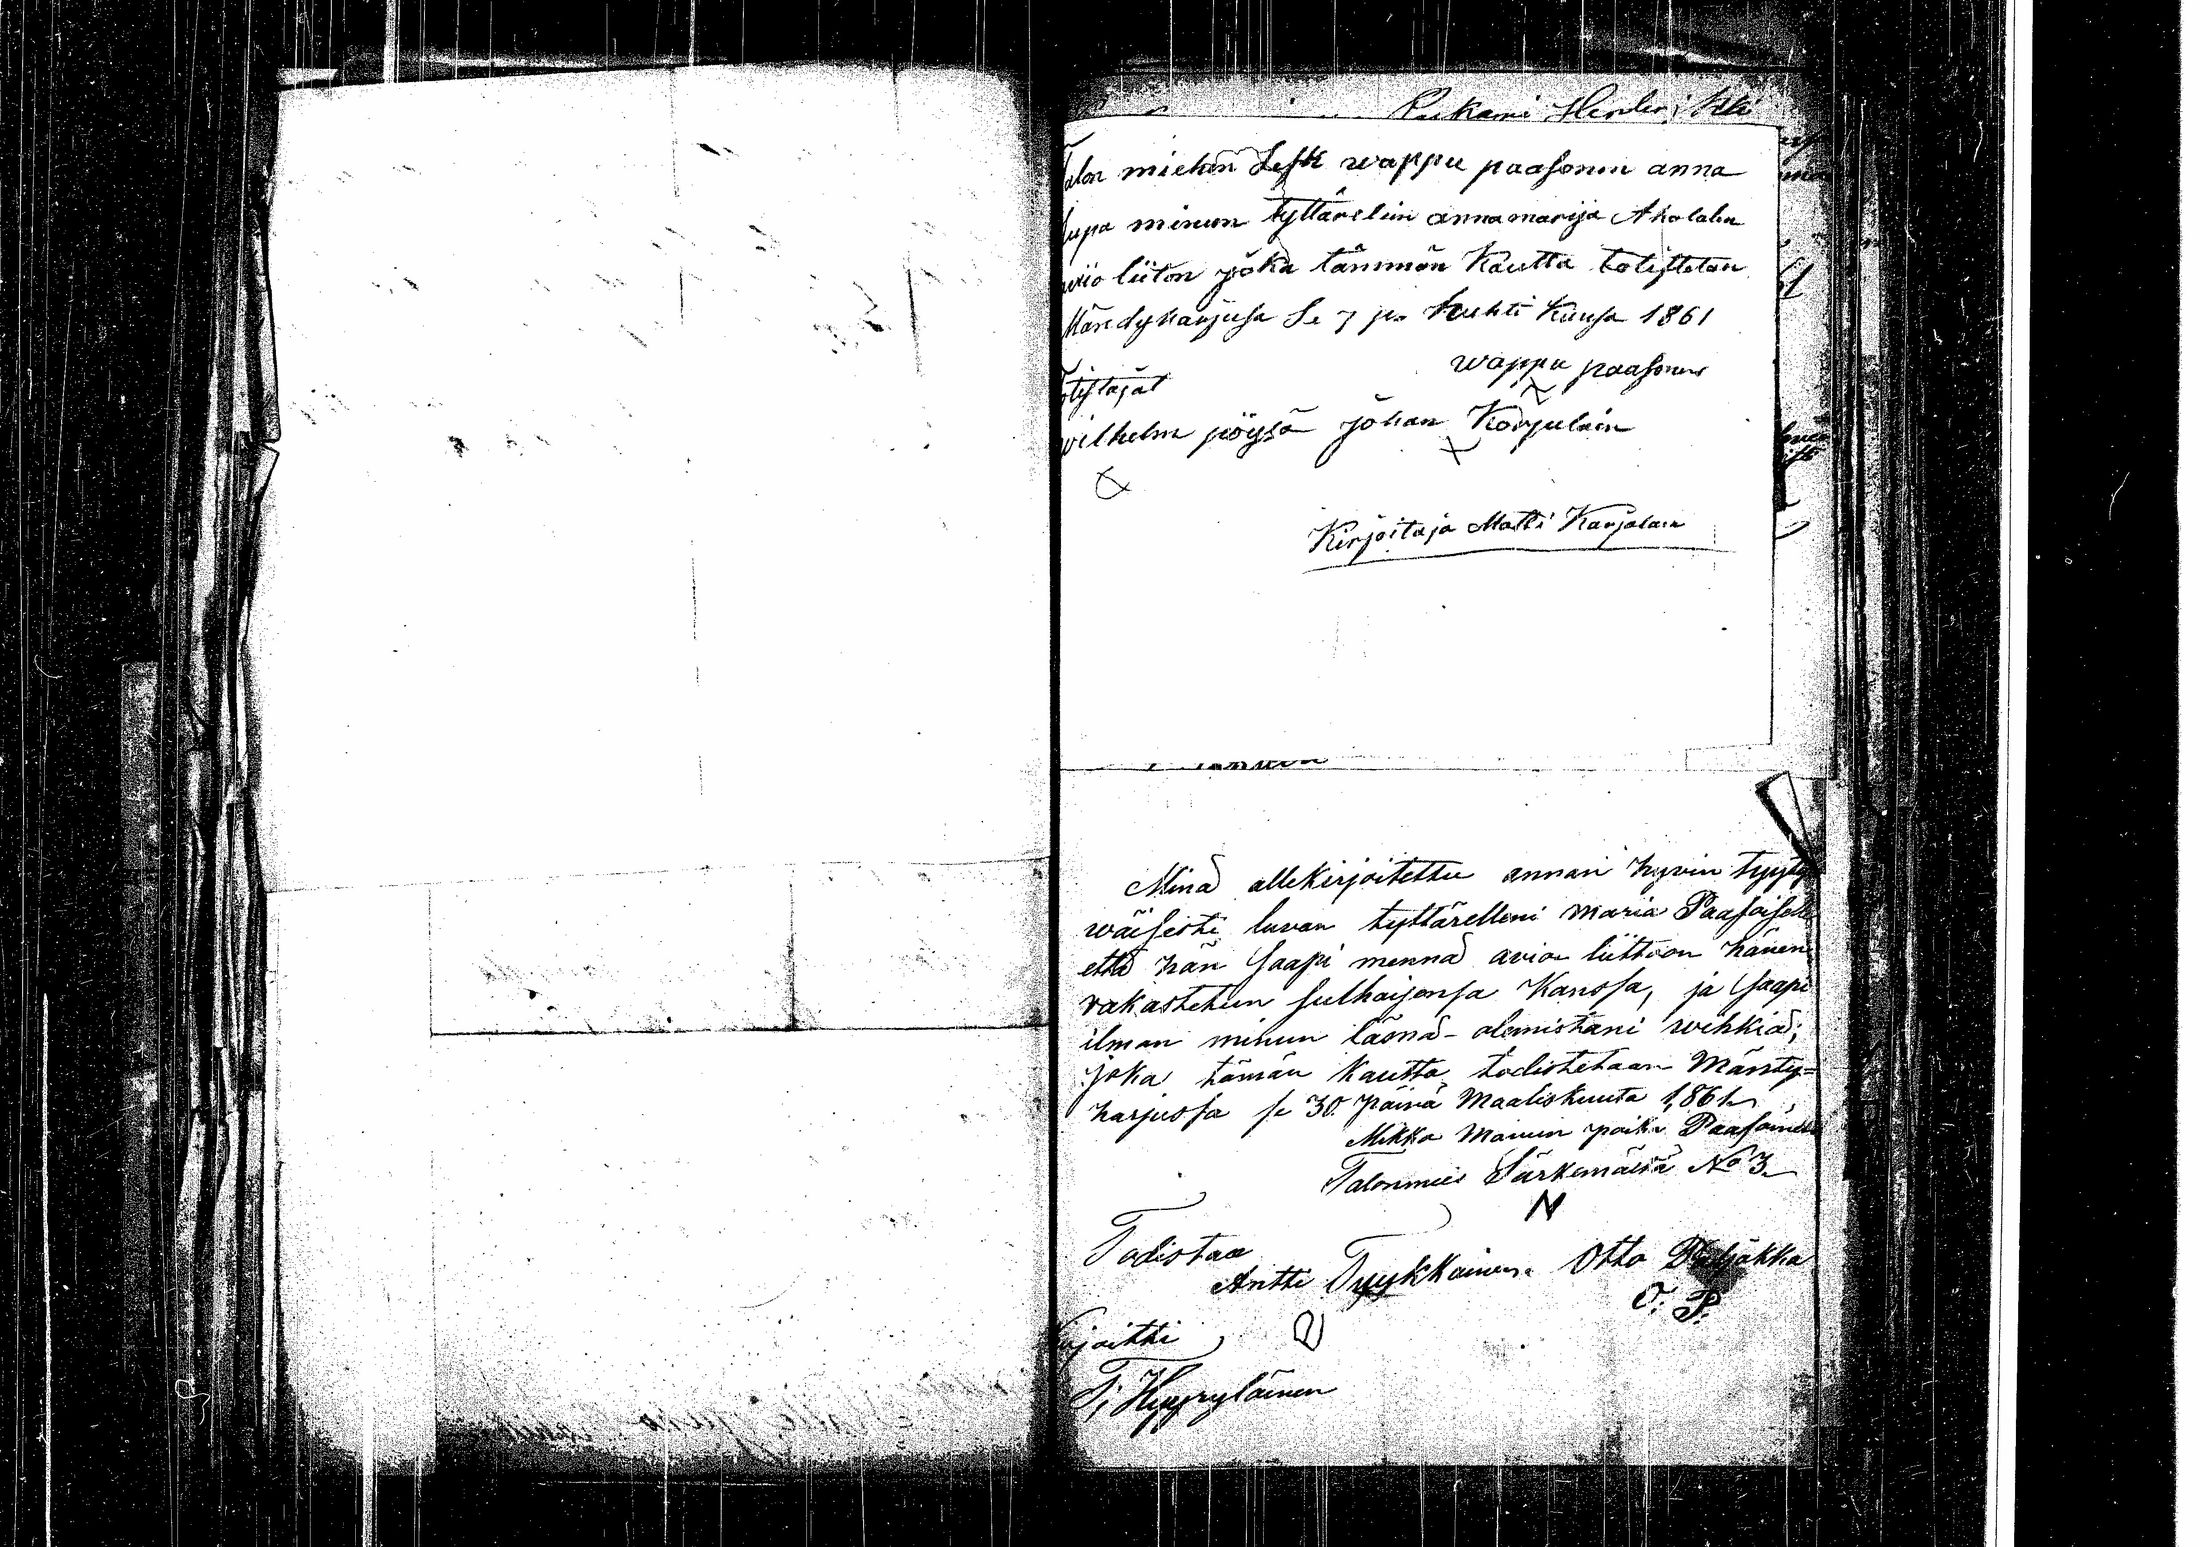 Talon miehen Lesk wappu paasonen anna
lupa minun tyttäreliin anna marija Aholalen
avio liiton jöka tämmän Kautta totistetan
Mändyharjusa Se 7 pa huhti Kuusa 1861
wappu paasonen
totistajat
wilhelm pöysä johan Korpulain
Kirjoitaja Matti Karjalain
Minä allekirjoitettu annan hyvin tyyty
wäisesti luvan tyttärelleni Maria Paasoiselle
että hän saapi mennä avio liittoon hänen
rakastetun sulhaisensa Kanssa, ja saapi
ilman minun läsnä-olemistani wihkiä;
joka tämän Kautta todistetaan Mänty=
harjussa se 30. päivä Maaliskuuta 1861
Mikko Manun poika Paasoinen
Talonmies Särkemäestä No 3
Todistaa
Antti Tyykkäinen. Otto
O. P.
Kirjoitti
T; Hyyryläinen